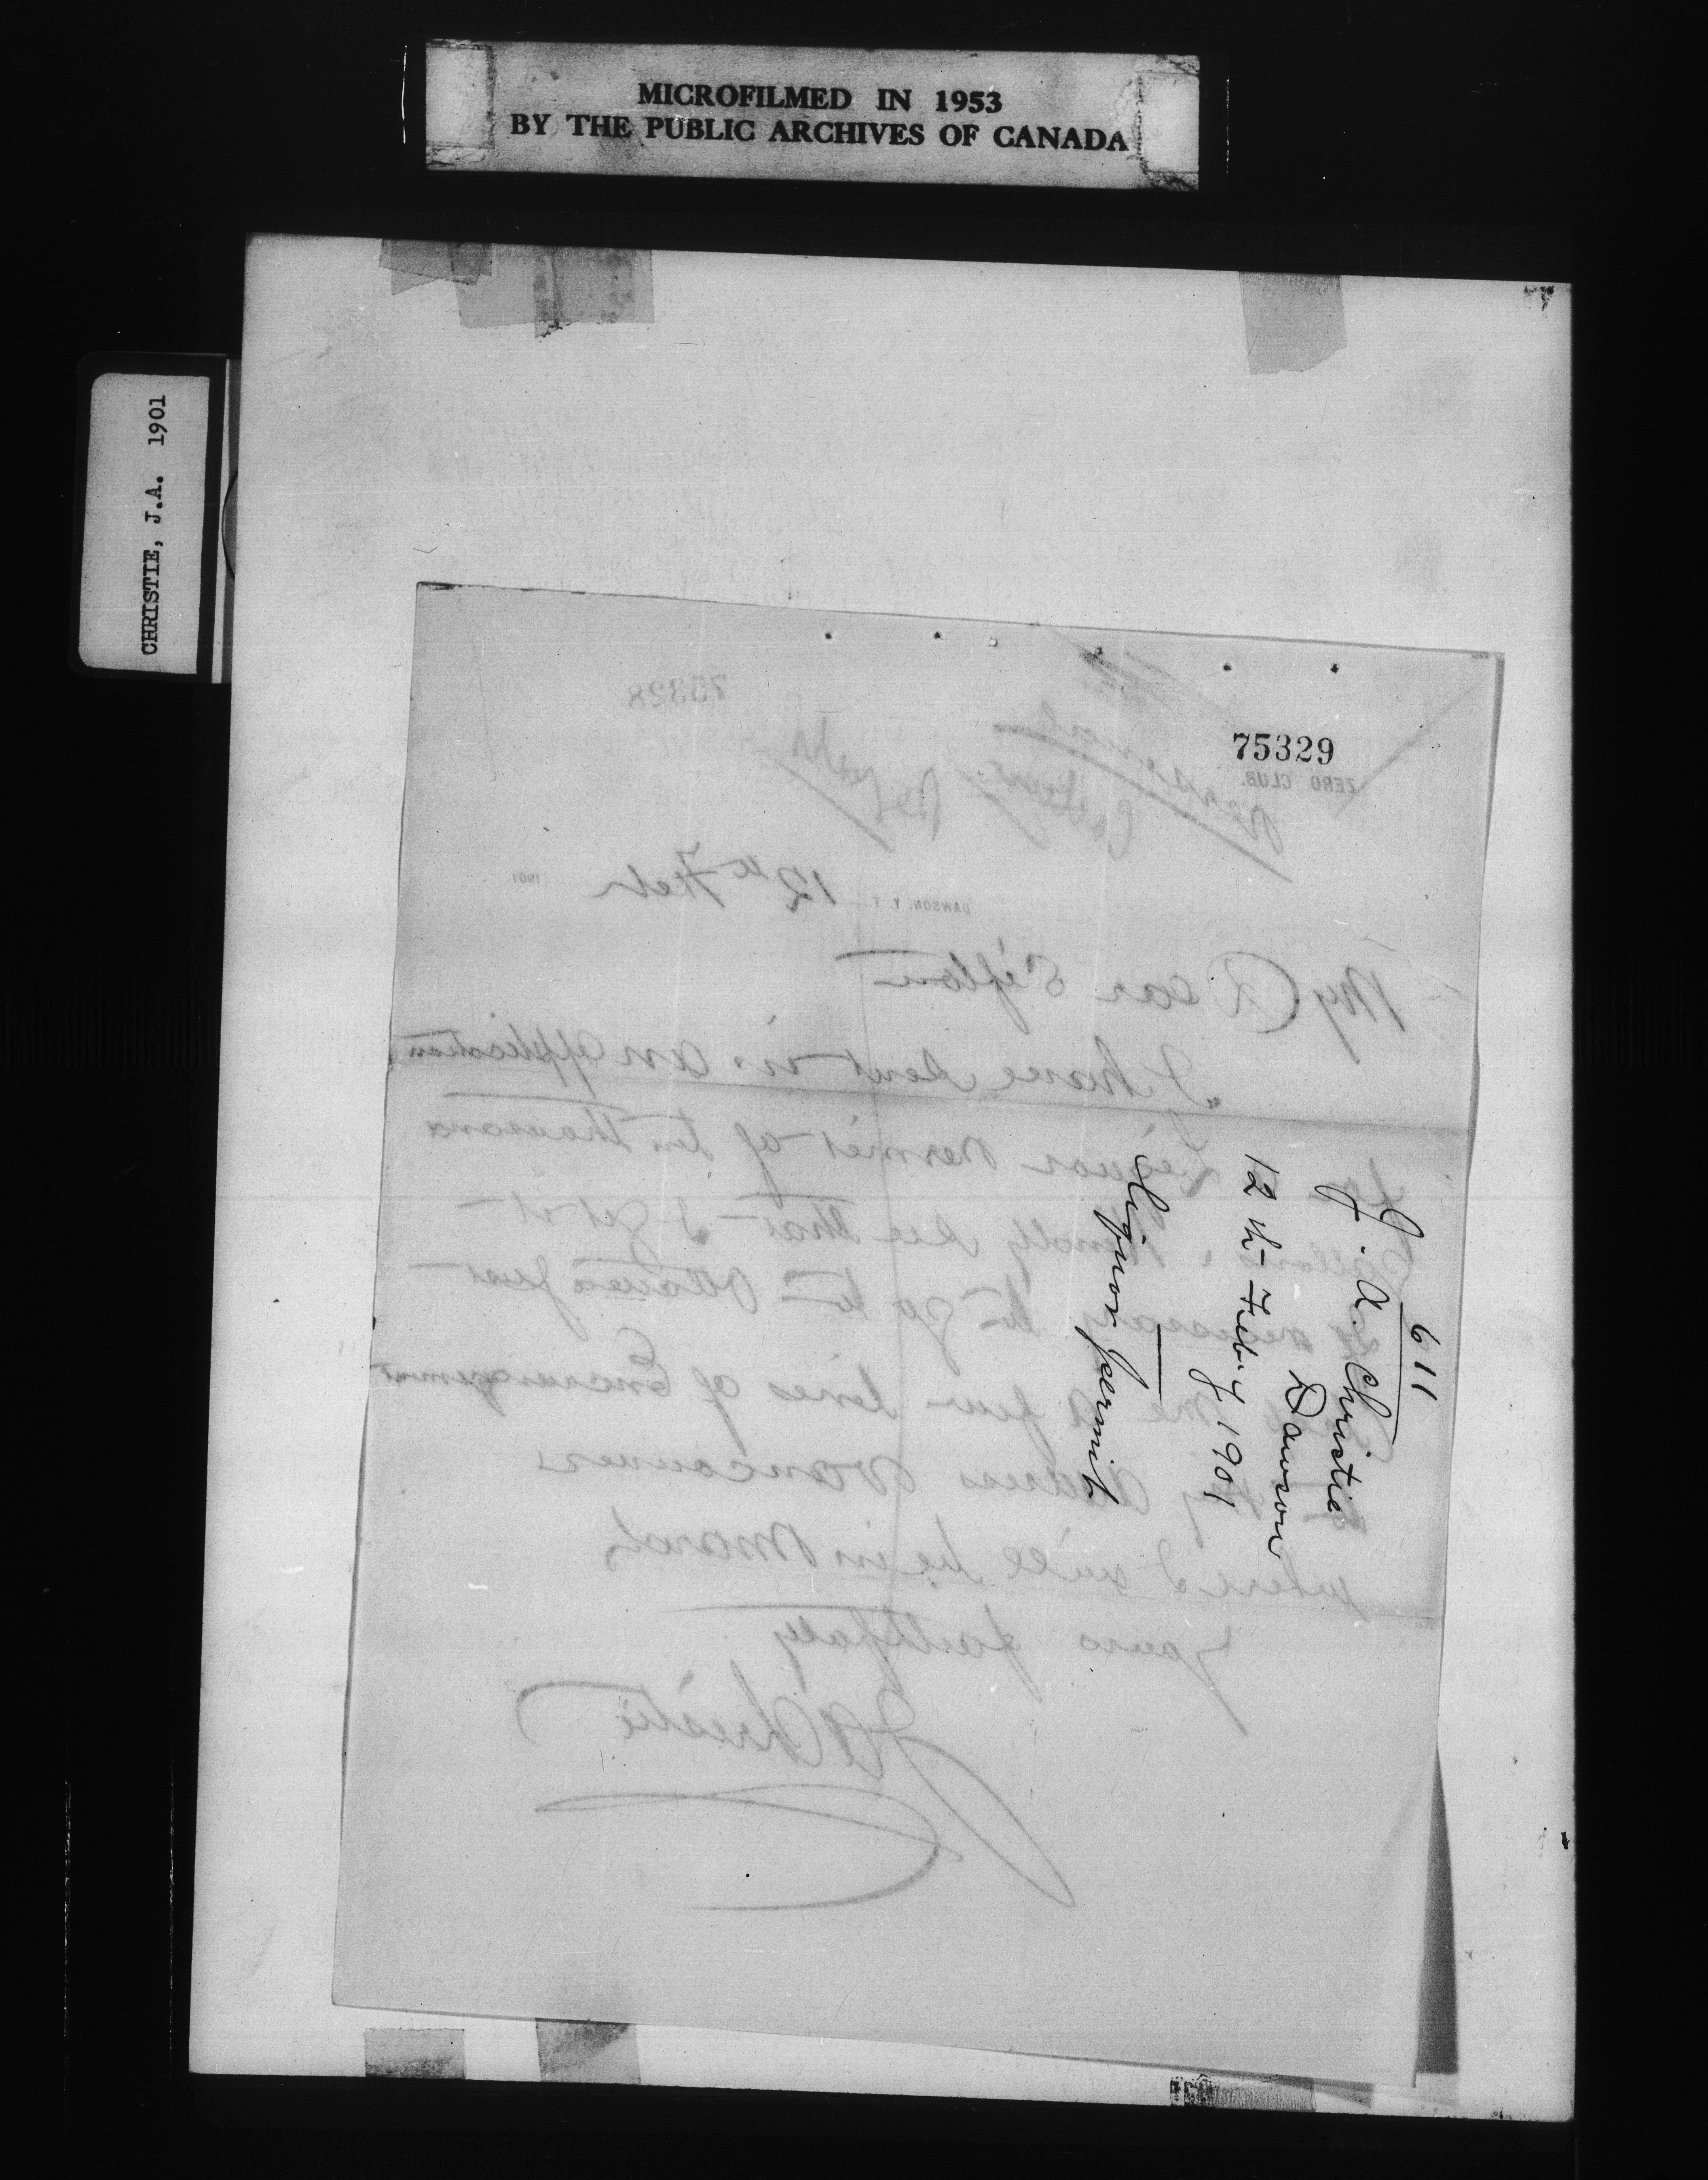 MICROFILMED IN 1953
BY THE PUBLIC ARCHIVES OF CANADA
CHRISTIE, J.A. 1901
75329
75328
ZERO CLUB.
DAWSON, Y. T. 12th Feb 1901
My Dear Sifton
I have sent in an application
for Liquor permit of ten thousand
Gallons. Kindly see that I get it
necessary to go to Ottawa just
me a few lines of Encouragement
to my address Vancouver
where I will be in March
yours faithfully
J A Christie
611
J. A. Christie
Dawson
12th Feby 1901
Liquor permit